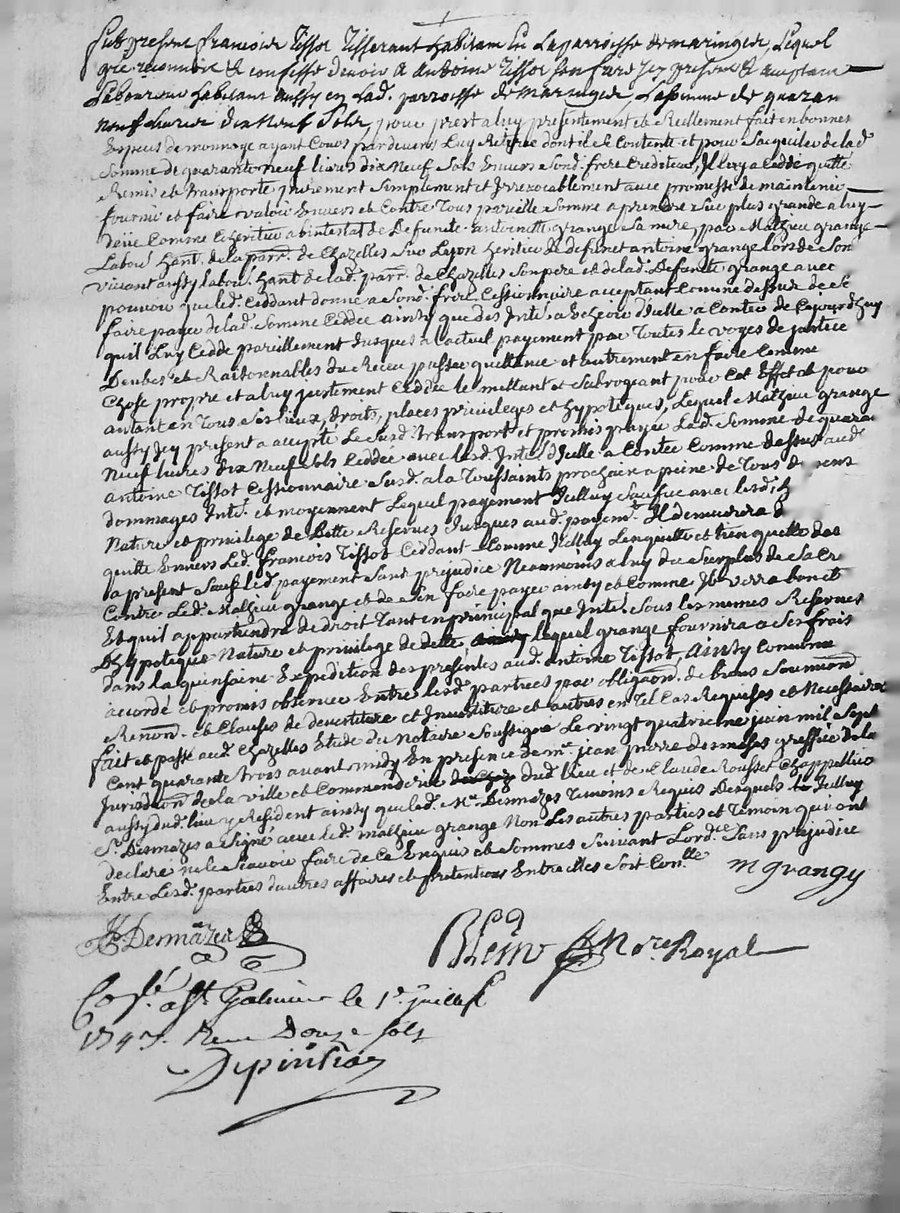 fut present francois Tissot Tisserant habitant en La parroisse de maringier, Lequel
gré reconnoit & confesse devoir a antoine Tissot son frere Icy present & acceptant
Laboureur habitant aussy en Lad. parroisse de maringier, La somme de quaran
neuf livres dix Neuf Sols, pour prest a luy presentement et Reellement fait en bonnes
Especes de monnoye ayant Cours par devers Luy Retirée dont il se Contente et pour s'acquiter de lad.
Somme de quarante neuf livres dix Neuf Sols Envers Sond. frere Crediteur, Il luy a Ceddé quitté
Remis et transporté purement Simplement et Irrevocablement avec promesse de maintenir
fournir et faire valoir Envers et Contre Tous pareille Somme a prendre Sur plus grande a luy
deüe Comme heritier abintestat de Defunte antoinette grange Sa mere, par Mathieu grange
Labou. hant. de la parr. de Chazelles Sur Leyon heritier de deffunct antoine grange lors de Son
vivant aussy labou. hant. de lad. parr. de Chazelles Son pere et de lad. Defunte grange avec
pouvoir que led. Ceddant donne a Sond. frere Cessionnaire acceptant Comme dessus de Se
faire payer de lad. Somme Ceddée ainsy que des Inte. a Echeoir d'Icelle a Conter de Cejourd'huy
quil Luy Cedde pareillement Jusques a l'actuel payement par Toutes Le voyes de Justice
Deubes et Raisonnables du Receu passer quittance et autrement en faire Comme
Chose propre et a luy justement Ceddée le mettant et Subrogeant pour Cet Effet et pour
autant en Tous Ses lieux, droits, places privileges et hypoteques, Lequel Mathieu grange
aussy Icy present a accepté Le Susd. transport et promis payer Lad. Somme de quaran
Neuf livres dix Neuf Sols Ceddée avec lesd. Inte. d'Icelle a Conter Comme dessus aud.
antoine Tissot Cessionnaire Susd. a la Toussaints prochain a peine de Tous depens
dommages Inte. et moyennant Lequel payement Jcelluy
Nature et privilege de Dette Reserves Jusques aud. payemt. Il demeurera
quitte Envers Led. francois Tissot Ceddant Comme Jcelluy Len quitte et tien quitte des
a present Sauf led. payement Sans prejudice Neanmoins a luy du Surplus de Sa Cr
Contre Led. Mathieu grange et de S'en faire payer ainsy et Comme Il verra bon et
Et quil appartiendra de droit Tant en principal que Inte. Sous les memes Reserves
D'hypoteque Nature et privilege de dette, lequel grange fournira a Ses frais
dans la quinsaine Expedition des presentes aud. antoine Tissot, ainsy Convenu
accordé et promis observer Entre lesd. partiees par obligaon. de biens Soumion
Renon. et Clauses de devestiture et Investiture et autres en Tel Cas Requises et Necessaires
fait et passé aud. Chazelles Etude du Notaire Soussigné Le vingt quatrieme juin mil Sept
Cent quarante trois avant midy En presence de mr. jean pierre desmazes greffier de la
Jurisdion de la ville et Commanderie dud. lieu et de Claude Rousset Chappellier
aussy dud. lieu y Resident ainsy que led. Mr. Desmazes Temoins Requis Desquels Jcelluy
Sr. Desmazes a Signé avec led. mathieu grange Non Les autres parties et Temoin qui ont
declaré ne le Scavoir faire de Ce Enquis et Sommes Suivant Lord.ce Sans prejudice
Entre Lesd. parties d'autres affaires et pretentions Entre elles Sont Con.lle
m grangy
Desmazes
Nore. Royal
Conle. a St. Galmier le 1r. juillet
1743. Receu Douze Sols